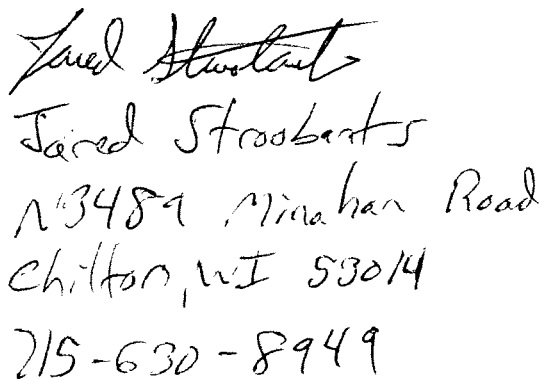 Jared Stroobants
Jared Stroobants
N3489 Minahan Road
Chilton, WI 53014
715-630-8949